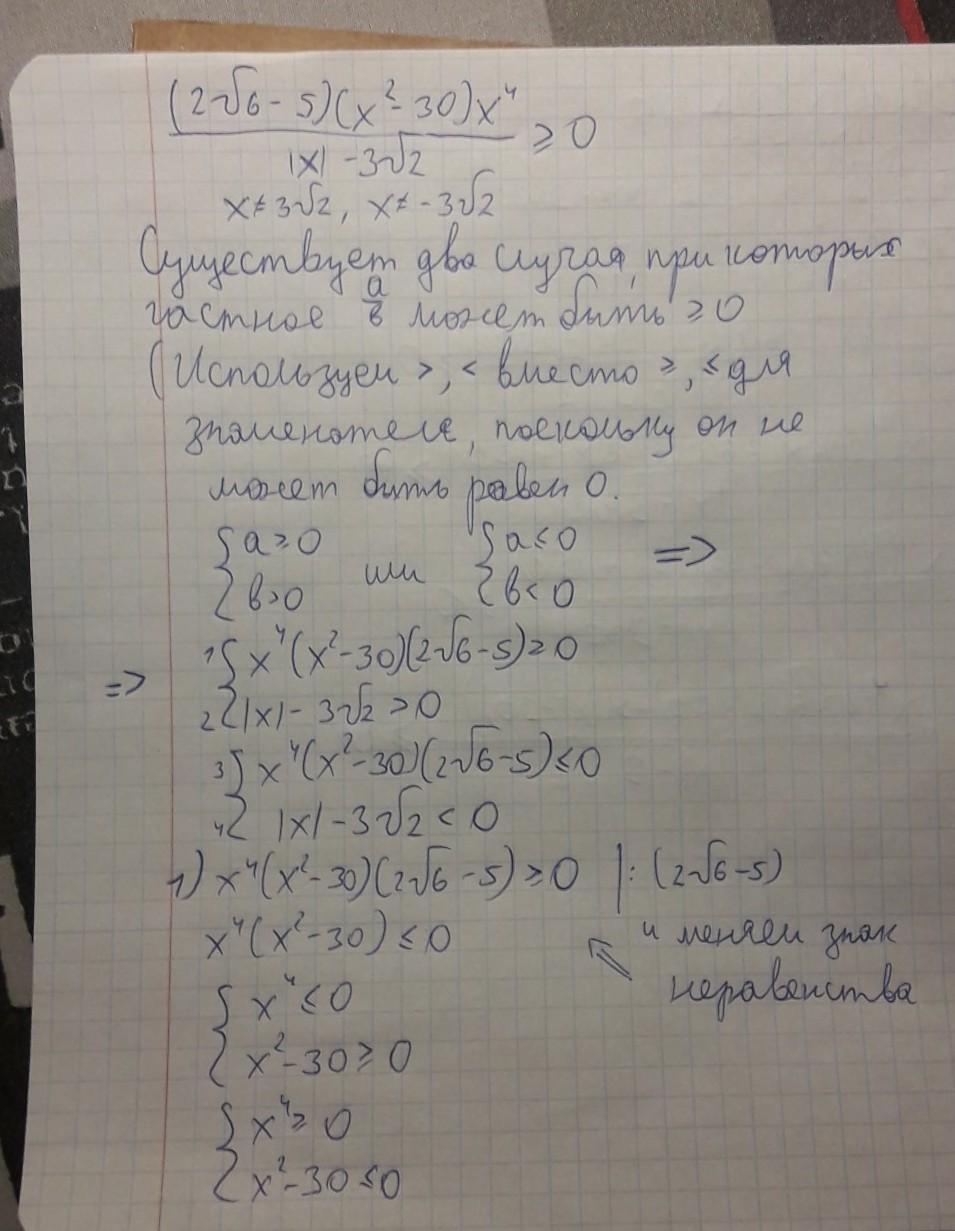 (2√6 - 5)(x² - 30)x⁴
|x| - 3√2
≥ 0
x ≠ 3√2, x ≠ -3√2
Существует два случая, при которых
частное a/в может быть ≥ 0
(Используем >, < вместо ≥, ≤ для
знаменателе, поскольку он не
может быть равен 0.
{ a ≥ 0 или { a ≤ 0 =>
{ в > 0 { в < 0
=> 1 { x⁴(x² - 30)(2√6 - 5) ≥ 0
2 { |x| - 3√2 > 0
3 { x⁴(x² - 30)(2√6 - 5) ≤ 0
4 { |x| - 3√2 < 0
1) x⁴(x² - 30)(2√6 - 5) ≥ 0 |: (2√6 - 5)
x⁴(x² - 30) ≤ 0 и меняем знак
неравенства
{ x⁴ ≤ 0
{ x² - 30 ≥ 0
{ x⁴ ≥ 0
{ x² - 30 ≤ 0